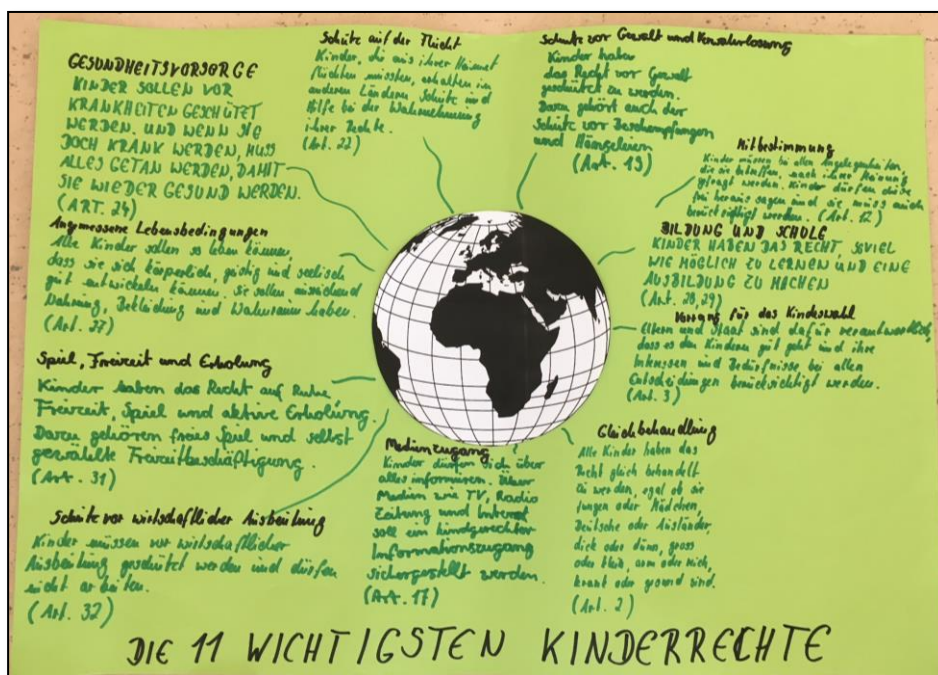 GESUNDHEITSVORSORGE
KINDER SOLLEN VOR
KRANKHEITEN GESCHÜTZT
WERDEN. UND WENN SIE
DOCH KRANK WERDEN, MUSS
ALLES GETAN WERDEN, DAMIT
SIE WIEDER GESUND WERDEN.
(ART. 24)
Angemessene Lebensbedingungen
Alle Kinder sollen so leben können,
dass sie sich körperlich, geistig und seelisch
gut entwickeln können. Sie sollen ausreichend
Nahrung, Bekleidung und Wohnraum haben.
(Art. 27)
Spiel, Freizeit und Erholung
Kinder haben das Recht auf Ruhe
Freizeit, Spiel und aktive Erholung.
Dazu gehören freies Spiel und selbst
gewählte Freizeitbeschäftigung.
(Art. 31)
Schutz vor wirtschaftlicher Ausbeutung
Kinder müssen vor wirtschaftlicher
Ausbeutung geschützt werden und dürfen
nicht arbeiten.
(Art. 32)
Schutz auf der Flucht
Kinder, die aus ihrer Heimat
flüchten müssten, erhalten in
anderen Ländern Schutz und
Hilfe bei der Wahrnehmung
ihrer Rechte.
(Art. 22)
Schutz vor Gewalt und Verwahrlosung
Kinder haben
das Recht vor Gewalt
geschützt zu werden.
Dazu gehört auch der
Schutz vor Beschimpfungen
und Hänseleien
(Art. 19)
Mitbestimmung
Kinder müssen bei allen Angelegenheiten,
die sie betreffen, nach ihrer Meinung
gefragt werden. Kinder dürfen diese
frei heraus sagen und sie muss auch
berücksichtigt werden. (Art. 12)
BILDUNG UND SCHULE
KINDER HABEN DAS RECHT, SOVIEL
WIE MÖGLICH ZU LERNEN UND EINE
AUSBILDUNG ZU MACHEN
(Art. 28, 29)
Vorrang für das Kindeswohl
Eltern und Staat sind dafür verantwortlich,
dass es den Kindern gut geht und ihre
Interessen und Bedürfnisse bei allen
Entscheidungen berücksichtigt werden.
(Art. 3)
Gleichbehandlung
Alle Kinder haben das
Recht gleich behandelt
zu werden, egal ob sie
Jungen oder Mädchen,
Deutsche oder Ausländer,
dick oder dünn, gross
oder klein, arm oder reich,
krank oder gesund sind.
(Art. 2)
Medienzugang
Kinder dürfen sich über
alles informieren. Über
Medien wie TV, Radio
Zeitung und Internet
soll ein kindgerechter
Informationszugang
sichergestellt werden.
(Art. 17)
DIE 11 WICHTIGSTEN KINDERRECHTE